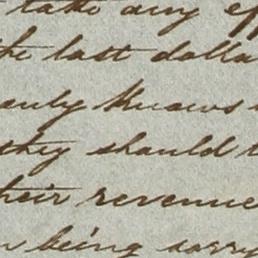 take any
the last dolla
only knows
they should
their revenue
being sorry